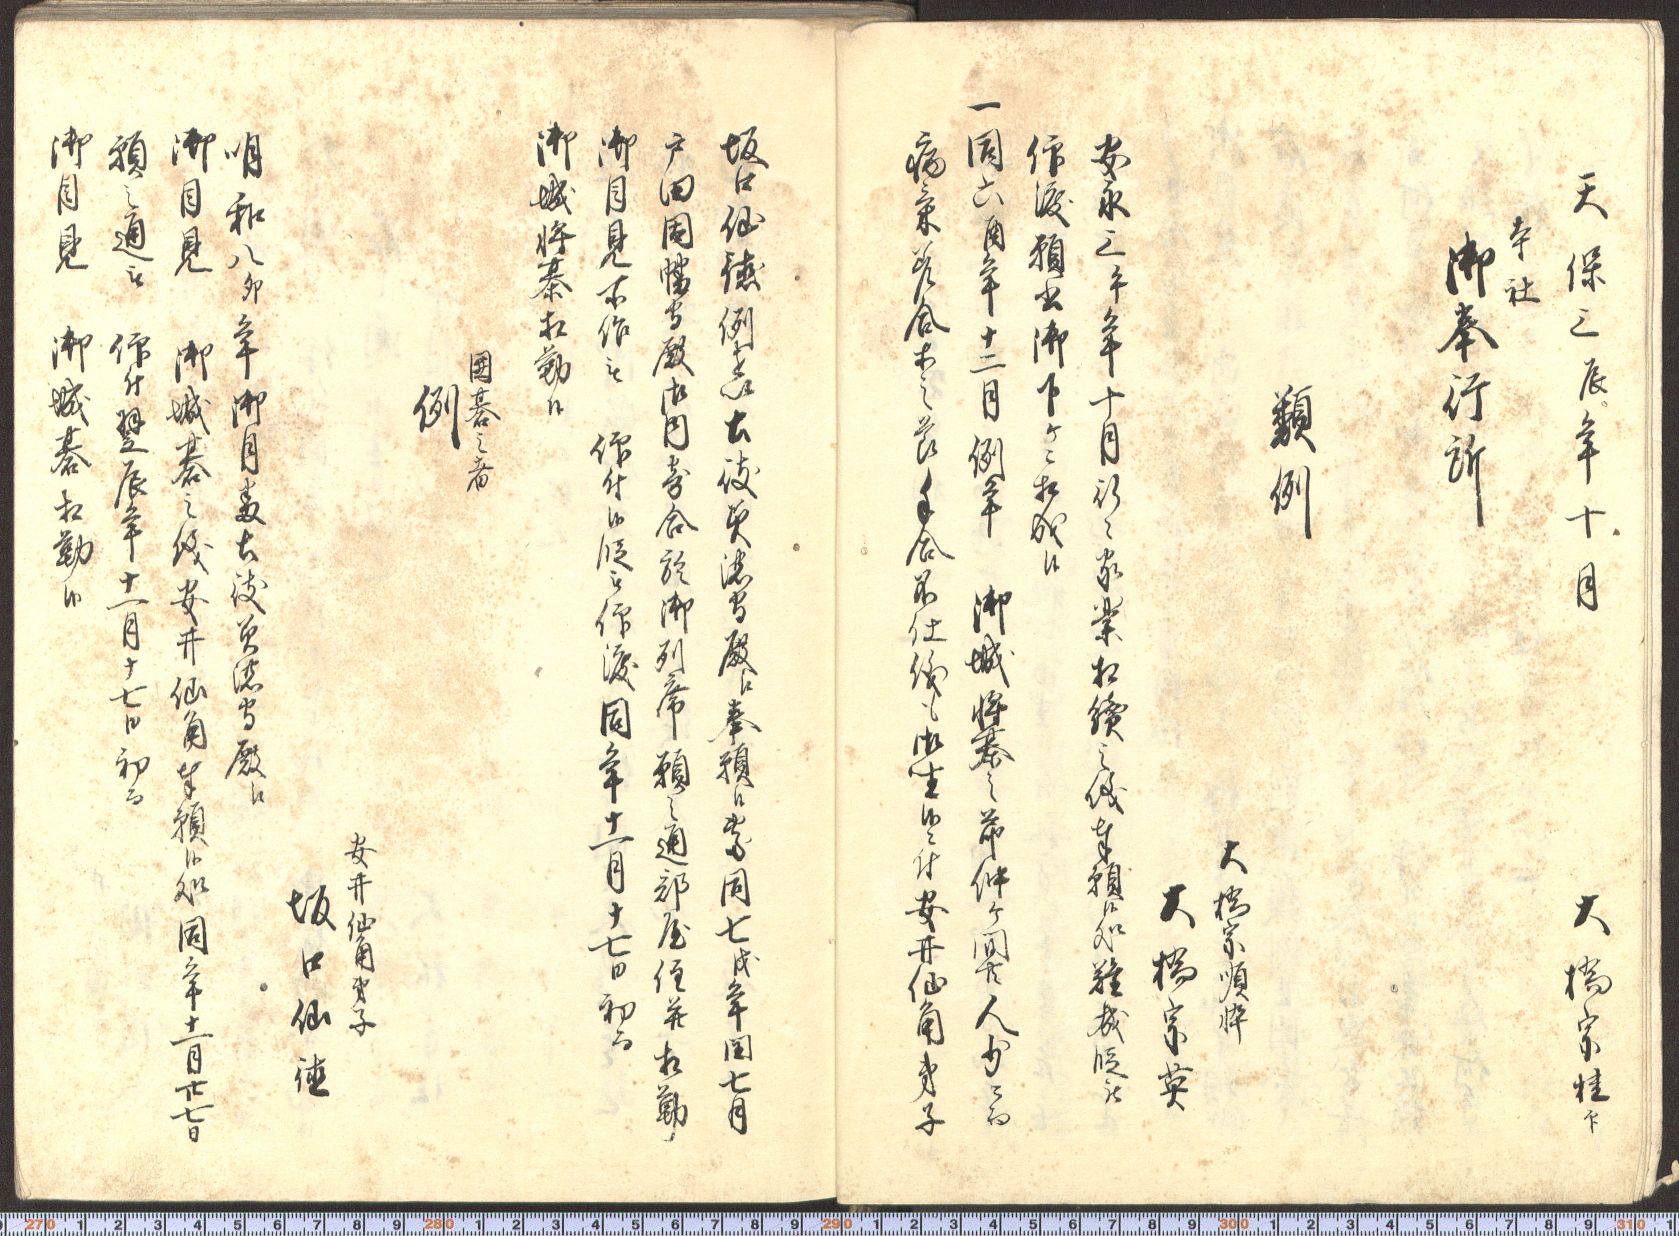 天保三辰年十月
大橋宗桂
寺社
御奉行所
類例
大橋宗順悴
大橋宗英
安永三午年十月 家業相續之儀奉願候処難被
仰渡願書御下ケニ相成候
一同六酉年十二月例年 御城将棊之節仲ケ間共人少ニ而
病気差合等之節手合不仕儀も御座候ニ付安井仙角弟子
坂口仙徳例书を以土岐美濃守殿江奉願候処同七戌年閏七月
戸田因幡守殿御内寄合於御列席願之通部屋住并相勤
御目見不作 仰付候段被仰渡同年十一月十七日初而
御城将棊相勤候
囲碁之者
例
安井仙角弟子
坂口仙徳
明和八卯年御月番土岐美濃守殿江
御目見 御城碁之儀安井仙角奉願候処同年十一月廿七日
願之通被 仰付翌辰年十一月十七日初而
御目見 御城碁相勤候